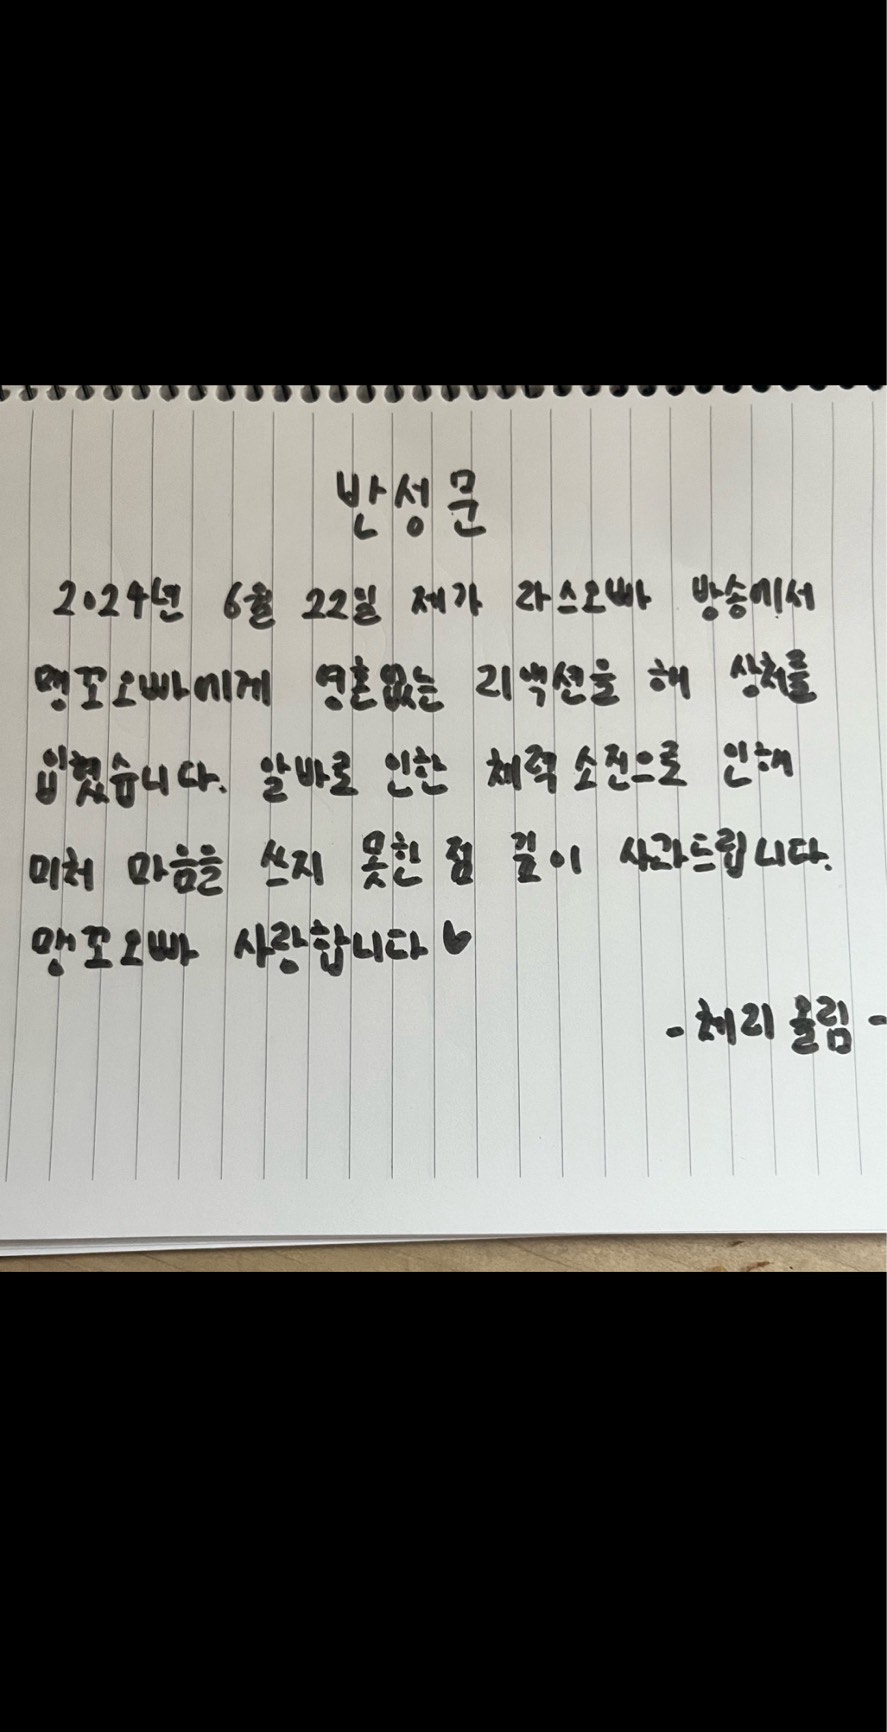 반성문
2024년 6월 22일 제가 라스오빠 방송에서
맹꼬오빠에게 영혼없는 리액션을 해 상처를
입혔습니다. 알바로 인한 체력 소진으로 인해
미처 마음을 쓰지 못한 점 깊이 사과드립니다.
맹꼬오빠 사랑합니다♥
- 체리 올림 -